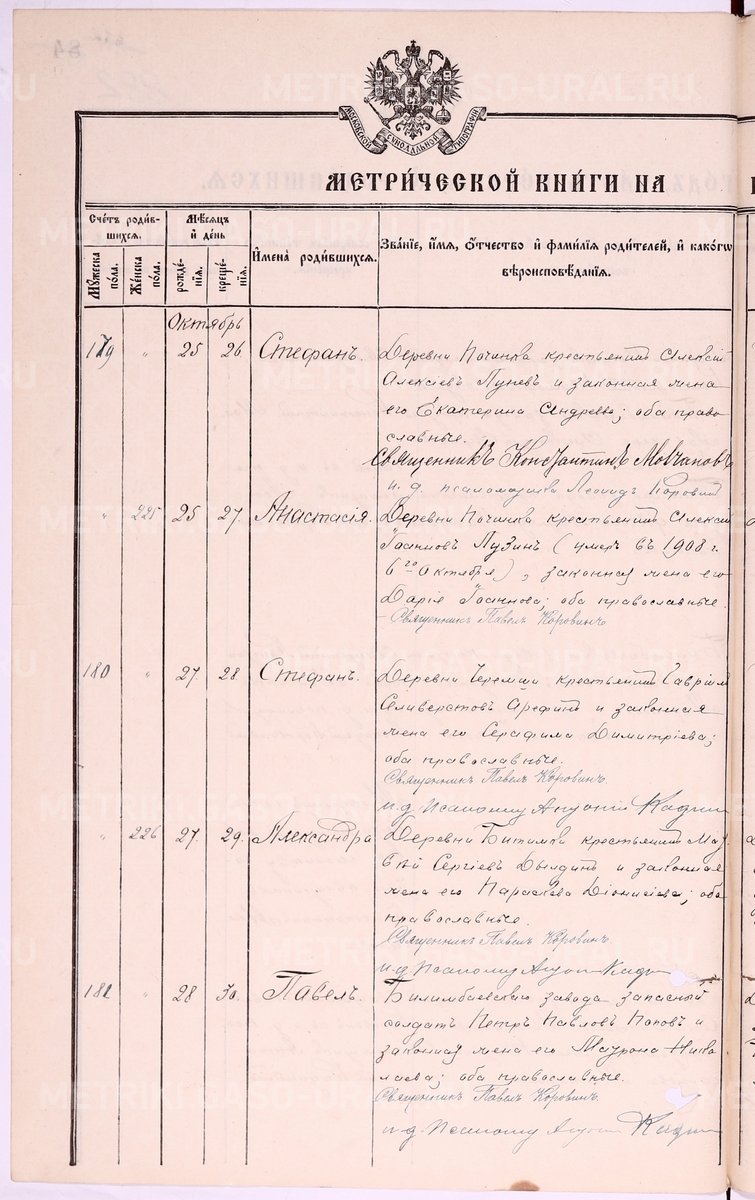 METRIKI.GASO-URAL.RU
МОСКОВСКОЙ СѴНОДАЛЬНОЙ ТИПОГРАФІИ
МЕТРИ́ЧЕСКОЙ КНИ́ГИ НА
Сче́тъ роди́в-
шихся.
Мѣ́сяцъ
и́ де́нь
Му́жеска
по́ла.
Же́нска
по́ла.
рожде́-
нія.
креще́-
нія.
И҆мена̀ роди́вшихся.
Зва́ніе, и҆́мя, ѻ҆́тчество и҆ фами́лія роди́телей, и҆ како́гѡ
вѣроисповѣ́данія.
Октябрь
179 " 25 26 Стефанъ. Деревни Починка крестьянинъ Алексій
Алексіевъ Лузинъ и законная жена
его Екатерина Андреева; оба право
славные.
Священникъ Константинъ
и. д. псаломщика Леонидъ Коровин
" 225 25 27 Анастасія. Деревни Починка крестьянинъ Алексій
Іоанновъ Лузинъ (умеръ въ 1908 г.
6го Октября), законная жена его
Дарія Іоаннова; оба православные.
Священникъ Павелъ Коровинъ
180 " 27 28 Стефанъ. Деревни Черемши крестьянинъ Гавріилъ
Селиверстовъ Арефинъ и законная
жена его Серафима Димитріева;
оба православные.
Священникъ Павелъ Коровинъ.
и. д. Псаломщ
" 226 27 29 Александра Деревни Битимки крестьянинъ Мат
ѳій Сергіевъ Дылдинъ и законная
жена его Параскева Діонисіева; оба
православные.
Священникъ Павелъ Коровинъ.
и. д. Псаломщ
181 " 28 30 Павелъ. Билимбаевскаго завода запасный
солдатъ Петръ Павловъ Поповъ и
законная жена его Матрона Нико
лаева; оба православные.
Священникъ Павелъ Коровинъ.
и. д. Псаломщ